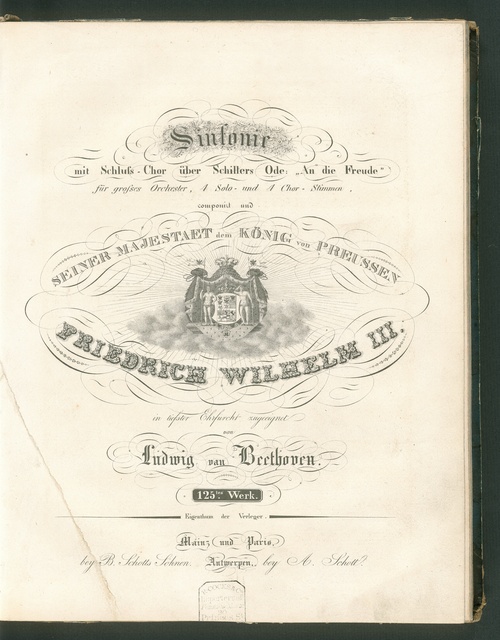 Sinfonie
mit Schluß-Chor über Schillers Ode: „An die Freude"
für großes Orchester, 4 Solo- und 4 Chor-Stimmen,
componirt und
SEINER MAJESTAET dem KÖNIG von PREUSSEN
FRIEDRICH WILHELM III.
in tiefster Ehrfurcht zugeeignet
von
Ludwig van Beethoven.
125tes Werk.
Eigenthum der Verleger.
Mainz und Paris,
bey B. Schotts Söhnen. Antwerpen, bey A. Schott.